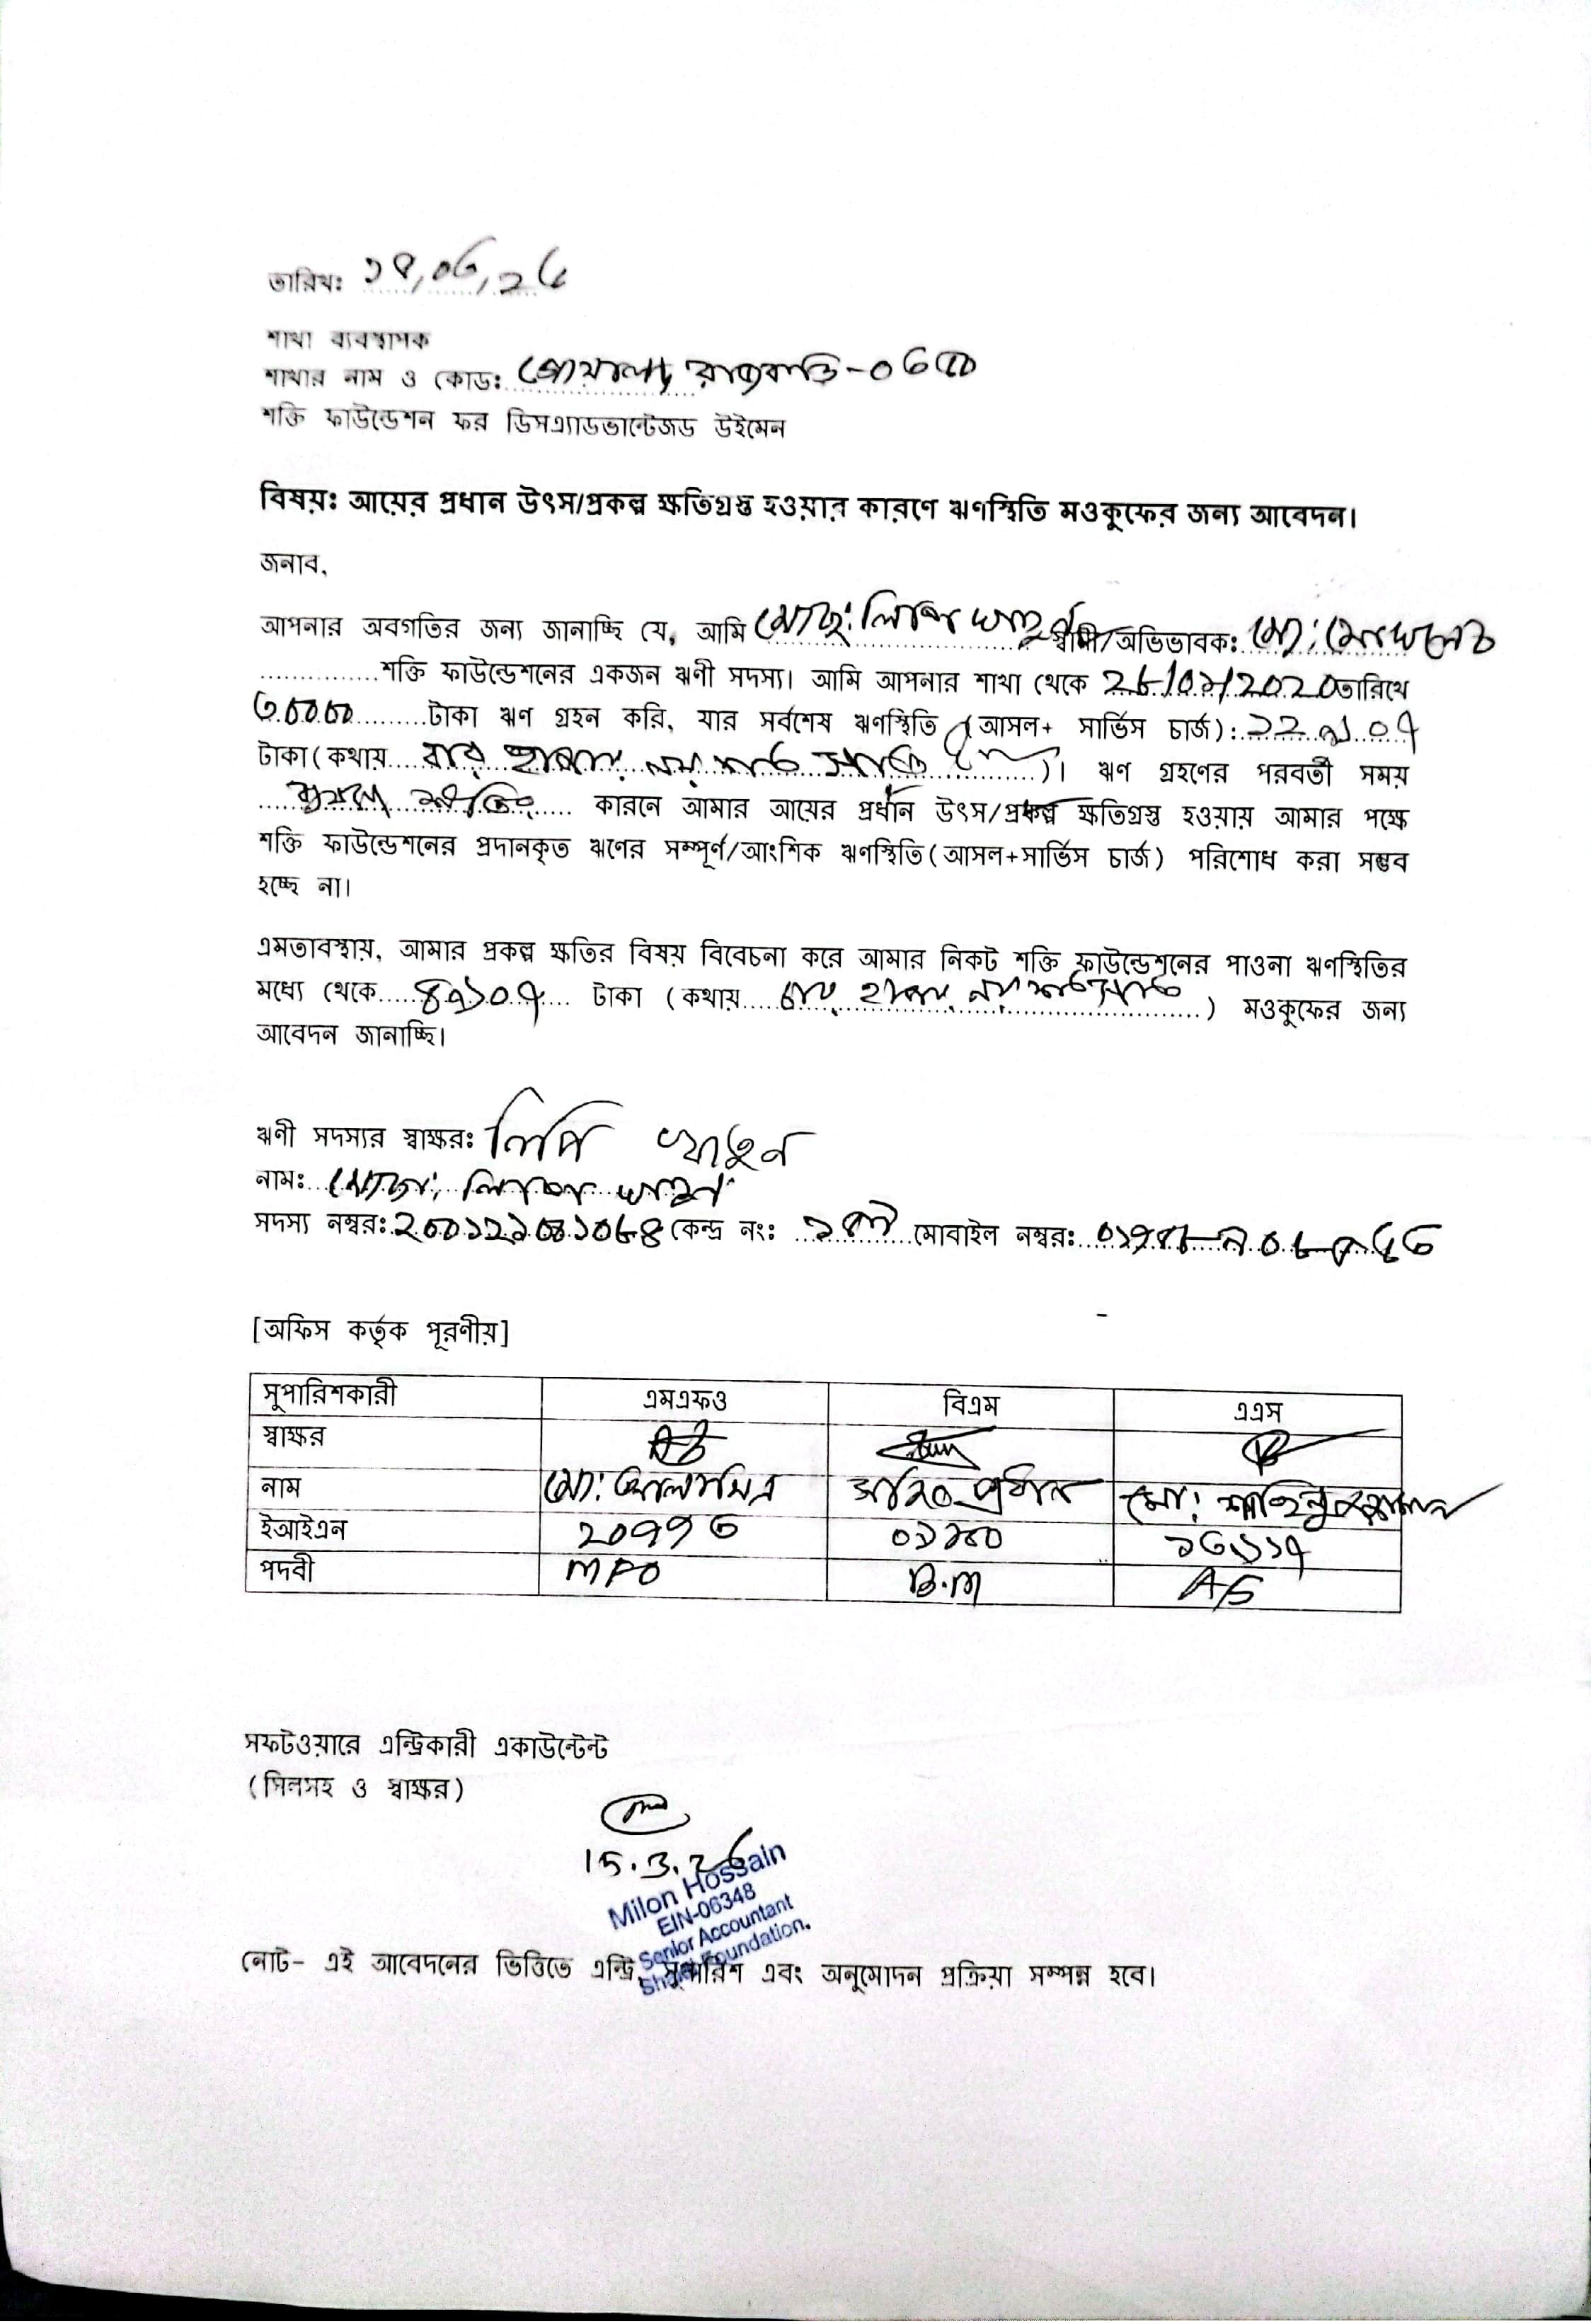 তারিখঃ ১৫,০৩,২৬
শাখা ব্যবস্থাপক
শাখার নাম ও কোডঃ রাজবাড়ি-০
শক্তি ফাউন্ডেশন ফর ডিসএ্যাডভান্টেজড উইমেন
বিষয়ঃ আয়ের প্রধান উৎস/প্রকল্প ক্ষতিগ্রস্ত হওয়ার কারণে ঋণস্থিতি মওকুফের জন্য আবেদন।
জনাব,
আপনার অবগতির জন্য জানাচ্ছি যে, আমি মোছাঃ লিপি খাতুন স্বামী/অভিভাবক: মোঃ
শক্তি ফাউন্ডেশনের একজন ঋণী সদস্য। আমি আপনার শাখা থেকে তারিখে
৩০০০০ টাকা ঋণ গ্রহন করি, যার সর্বশেষ ঋণস্থিতি (আসল+ সার্ভিস চার্জ):১২৯০৭
টাকা(কথায় বার হাজার নয় শত সাত )। ঋণ গ্রহণের পরবর্তী সময়
কারনে আমার আয়ের প্রধান উৎস/প্রকল্প ক্ষতিগ্রস্ত হওয়ায় আমার পক্ষে
শক্তি ফাউন্ডেশনের প্রদানকৃত ঋণের সম্পূর্ণ/আংশিক ঋণস্থিতি(আসল+সার্ভিস চার্জ) পরিশোধ করা সম্ভব
হচ্ছে না।
এমতাবস্থায়, আমার প্রকল্প ক্ষতির বিষয় বিবেচনা করে আমার নিকট শক্তি ফাউন্ডেশনের পাওনা ঋণস্থিতির
মধ্যে থেকে ৪৯০৭ টাকা (কথায় চার হাজার নয় শত সাত ) মওকুফের জন্য
আবেদন জানাচ্ছি।
ঋণী সদস্যর স্বাক্ষরঃ লিপি খাতুন
নামঃ মোছাঃ লিপি খাতুন
সদস্য নম্বরঃ কেন্দ্র নংঃ মোবাইল নম্বরঃ
[অফিস কর্তৃক পূরণীয়]
সুপারিশকারী এমএফও বিএম এএস
স্বাক্ষর
নাম মোঃ আলামিন প্রধান মোঃ
ইআইএন ২০৭৭৩ ১৩১১৭
পদবী MFO B.M A/S
সফটওয়ারে এন্ট্রিকারী একাউন্টেন্ট
(সিলসহ ও স্বাক্ষর)
15.3.26
Milon Hossain
EIN-06348
Senior Accountant
Shakti Foundation.
নোট- এই আবেদনের ভিত্তিতে এন্ট্রি, সুপারিশ এবং অনুমোদন প্রক্রিয়া সম্পন্ন হবে।